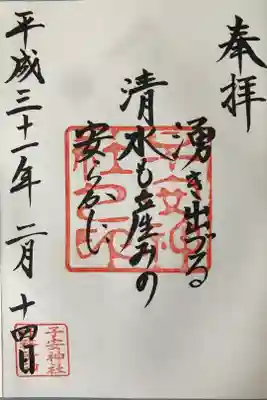 奉拝
湧き出づる
清水も産みの
安らかじ
平成三十一年 二月 十四日
子安神社